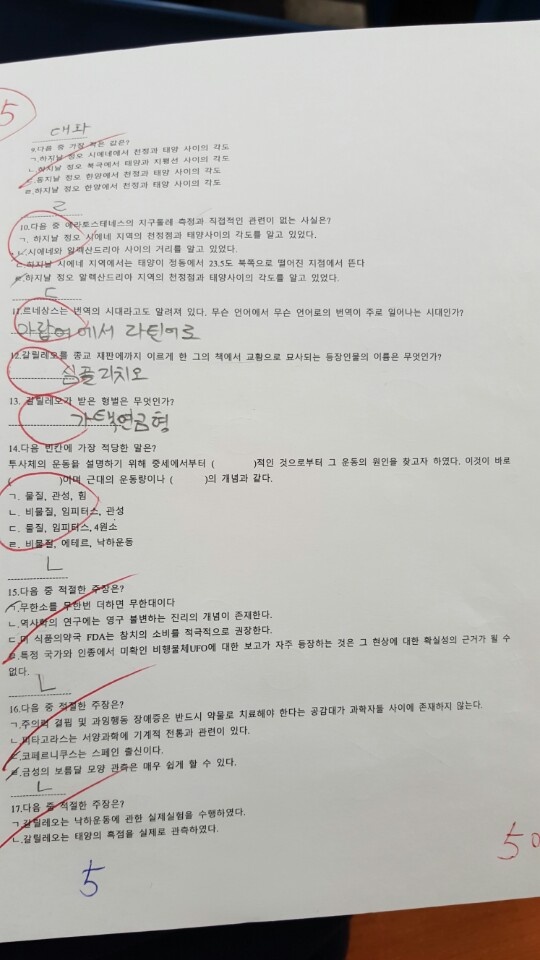 5
대화
9.다음 중 가장 작은 값은?
ㄱ.하지날 정오 시에네에서 천정과 태양 사이의 각도
ㄴ.하지날 정오 북극에서 태양과 지평선 사이의 각도
ㄷ.동지날 정오 한양에서 천정과 태양 사이의 각도
ㄹ.하지날 정오 한양에서 천정과 태양 사이의 각도
ㄹ
10.다음 중 에라토스테네스의 지구둘레 측정과 직접적인 관련이 없는 사실은?
ㄱ. 하지날 정오 시에네 지역의 천정점과 태양사이의 각도를 알고 있었다.
ㄴ.시에네와 알렉산드리아 사이의 거리를 알고 있었다.
ㄷ.하지날 시에네 지역에서는 태양이 정동에서 23.5도 북쪽으로 떨어진 지점에서 뜬다
ㄹ.하지날 정오 알렉산드리아 지역의 천정점과 태양사이의 각도를 알고 있었다.
ㄷ
11.르네상스는 번역의 시대라고도 알려져 있다. 무슨 언어에서 무슨 언어로의 번역이 주로 일어나는 시대인가?
아랍어에서 라틴어로
12.갈릴레오를 종교 재판에까지 이르게 한 그의 책에서 교황으로 묘사되는 등장인물의 이름은 무엇인가?
심플리치오
13. 갈릴레오가 받은 형벌은 무엇인가?
가택연금형
14.다음 빈칸에 가장 적당한 말은?
투사체의 운동을 설명하기 위해 중세에서부터 ( )적인 것으로부터 그 운동의 원인을 찾고자 하였다. 이것이 바로
( )이며 근대의 운동량이나 ( )의 개념과 같다.
ㄱ. 물질, 관성, 힘
ㄴ. 비물질, 임피터스, 관성
ㄷ. 물질, 임피터스, 4원소
ㄹ. 비물질, 에테르, 낙하운동
ㄴ
15.다음 중 적절한 주장은?
ㄱ.무한소를 무한번 더하면 무한대이다
ㄴ.역사학의 연구에는 영구 불변하는 진리의 개념이 존재한다.
ㄷ.미 식품의약국 FDA는 참치의 소비를 적극적으로 권장한다.
ㄹ.특정 국가와 인종에서 미확인 비행물체UFO에 대한 보고가 자주 등장하는 것은 그 현상에 대한 확실성의 근거가 될 수
없다.
ㄴ
16.다음 중 적절한 주장은?
ㄱ.주의력 결핍 및 과잉행동 장애증은 반드시 약물로 치료해야 한다는 공감대가 과학자들 사이에 존재하지 않는다.
ㄴ.피타고라스는 서양과학에 기계적 전통과 관련이 있다.
ㄷ.코페르니쿠스는 스페인 출신이다.
ㄹ.금성의 보름달 모양 관측은 매우 쉽게 할 수 있다.
ㄴ
17.다음 중 적절한 주장은?
ㄱ.갈릴레오는 낙하운동에 관한 실제실험을 수행하였다.
ㄴ.갈릴레오는 태양의 흑점을 실제로 관측하였다.
5